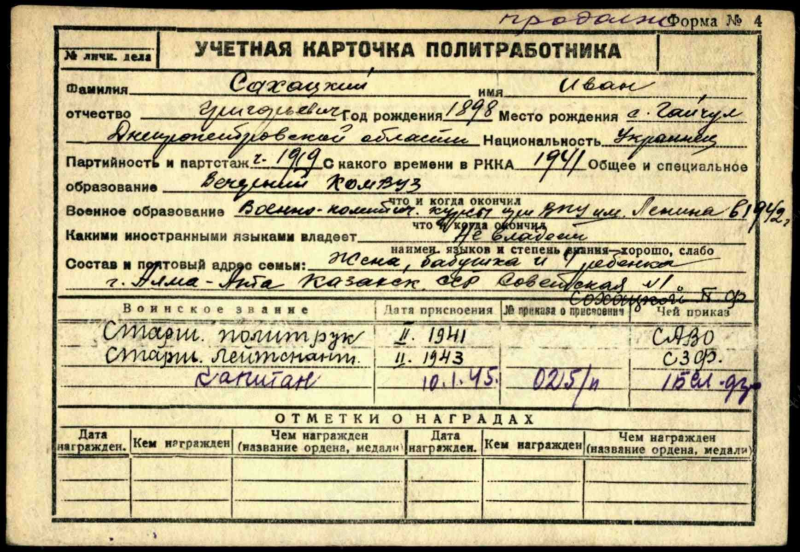 продолж Форма № 4
№ личн. дела УЧЕТНАЯ КАРТОЧКА ПОЛИТРАБОТНИКА
Фамилия Сахацкий имя Иван
отчество Григорьевич Год рождения 1898 Место рождения с. Гайчул
Днепропетровской области Национальность Украинец
Партийность и партстаж с 1919 С какого времени в РККА 1941 Общее и специальное
образование Вечерний Комвуз
что и когда окончил
Военное образование Военно-политич. курсы при ВПУ им. Ленина в 1942г
что и когда окончил
Какими иностранными языками владеет Не владеет
наимен. языков и степень знания—хорошо, слабо
Состав и почтовый адрес семьи: Жена, бабушка и ребенка
г. Алма-Ата Казахск. ССР Советская №1
Сахацкой
Воинское звание Дата присвоения № приказа о присвоении Чей приказ
Старш. политрук II. 1941 САВО
Старш. Лейтенант. II. 1943 СЗФ.
капитан 10.1.45. 025/п 1 Бел. фр
ОТМЕТКИ О НАГРАДАХ
Дата награжден. Кем награжден Чем награжден (название ордена, медали) Дата награжден. Кем награжден Чем награжден (название ордена, медали)